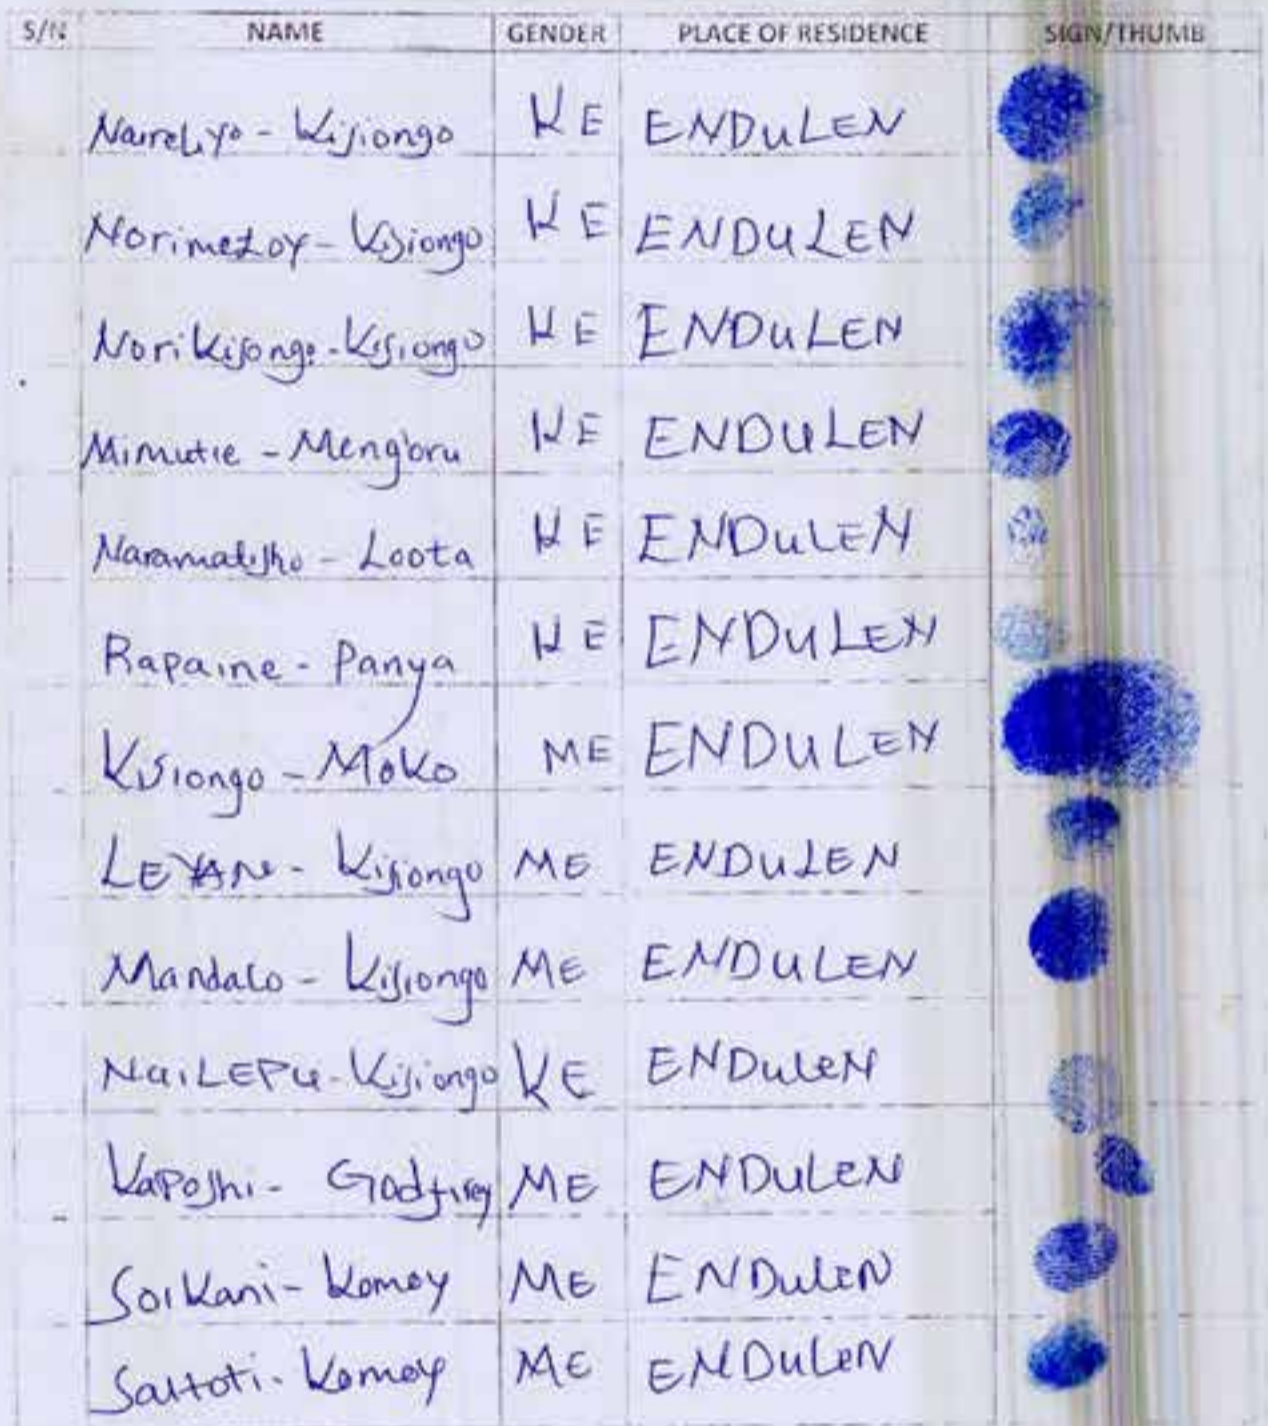 S/N NAME GENDER PLACE OF RESIDENCE SIGN/THUMB
Naireliyo - Kisiongo KE ENDULEN
Norimeloy - Kisiongo KE ENDULEN
Norikisongo - Kisiongo KE ENDULEN
Mimutie - Meng'oru KE ENDULEN
Naramatisho - Loota KE ENDULEN
Rapaine - Panya KE ENDULEN
Kisiongo - Moko ME ENDULEN
LEYAN - Kisiongo ME ENDULEN
Mandalo - Kisiongo ME ENDULEN
NaiLEPU - Kisiongo KE ENDULEN
Kaposhi - Godfrey ME ENDULEN
Soikani - Komoy ME ENDULEN
Saitoti - Komoy ME ENDULEN